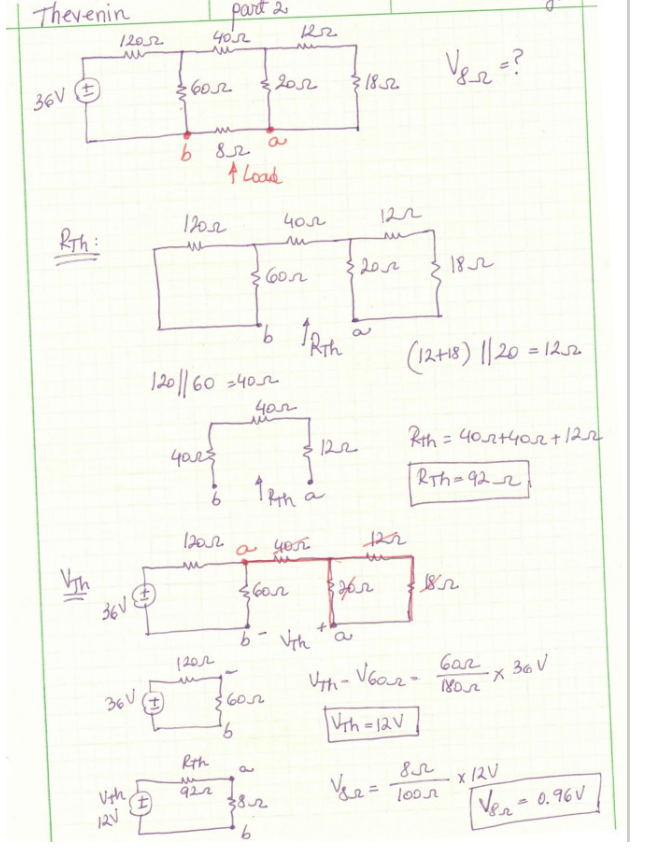 Thevenin part 2
120Ω 40Ω 12Ω
36V 60Ω 20Ω 18Ω V8Ω = ?
b 8Ω a
↑ Load
RTh:
120Ω 40Ω 12Ω
60Ω 20Ω 18Ω
b ↑RTh a
(12+18) || 20 = 12Ω
120 || 60 = 40Ω
40Ω
40Ω 12Ω
b ↑RTh a
Rth = 40Ω+40Ω+12Ω
RTh = 92Ω
VTh
120Ω a 40Ω 12Ω
36V 60Ω 20Ω 18Ω
b - VTh + a
120Ω -
36V 60Ω
b
VTh - V60Ω = 60Ω / 180Ω × 36V
VTh = 12V
RTh a
92Ω
Vth 12V 8Ω
b
V8Ω = 8Ω / 100Ω × 12V
V8Ω = 0.96V